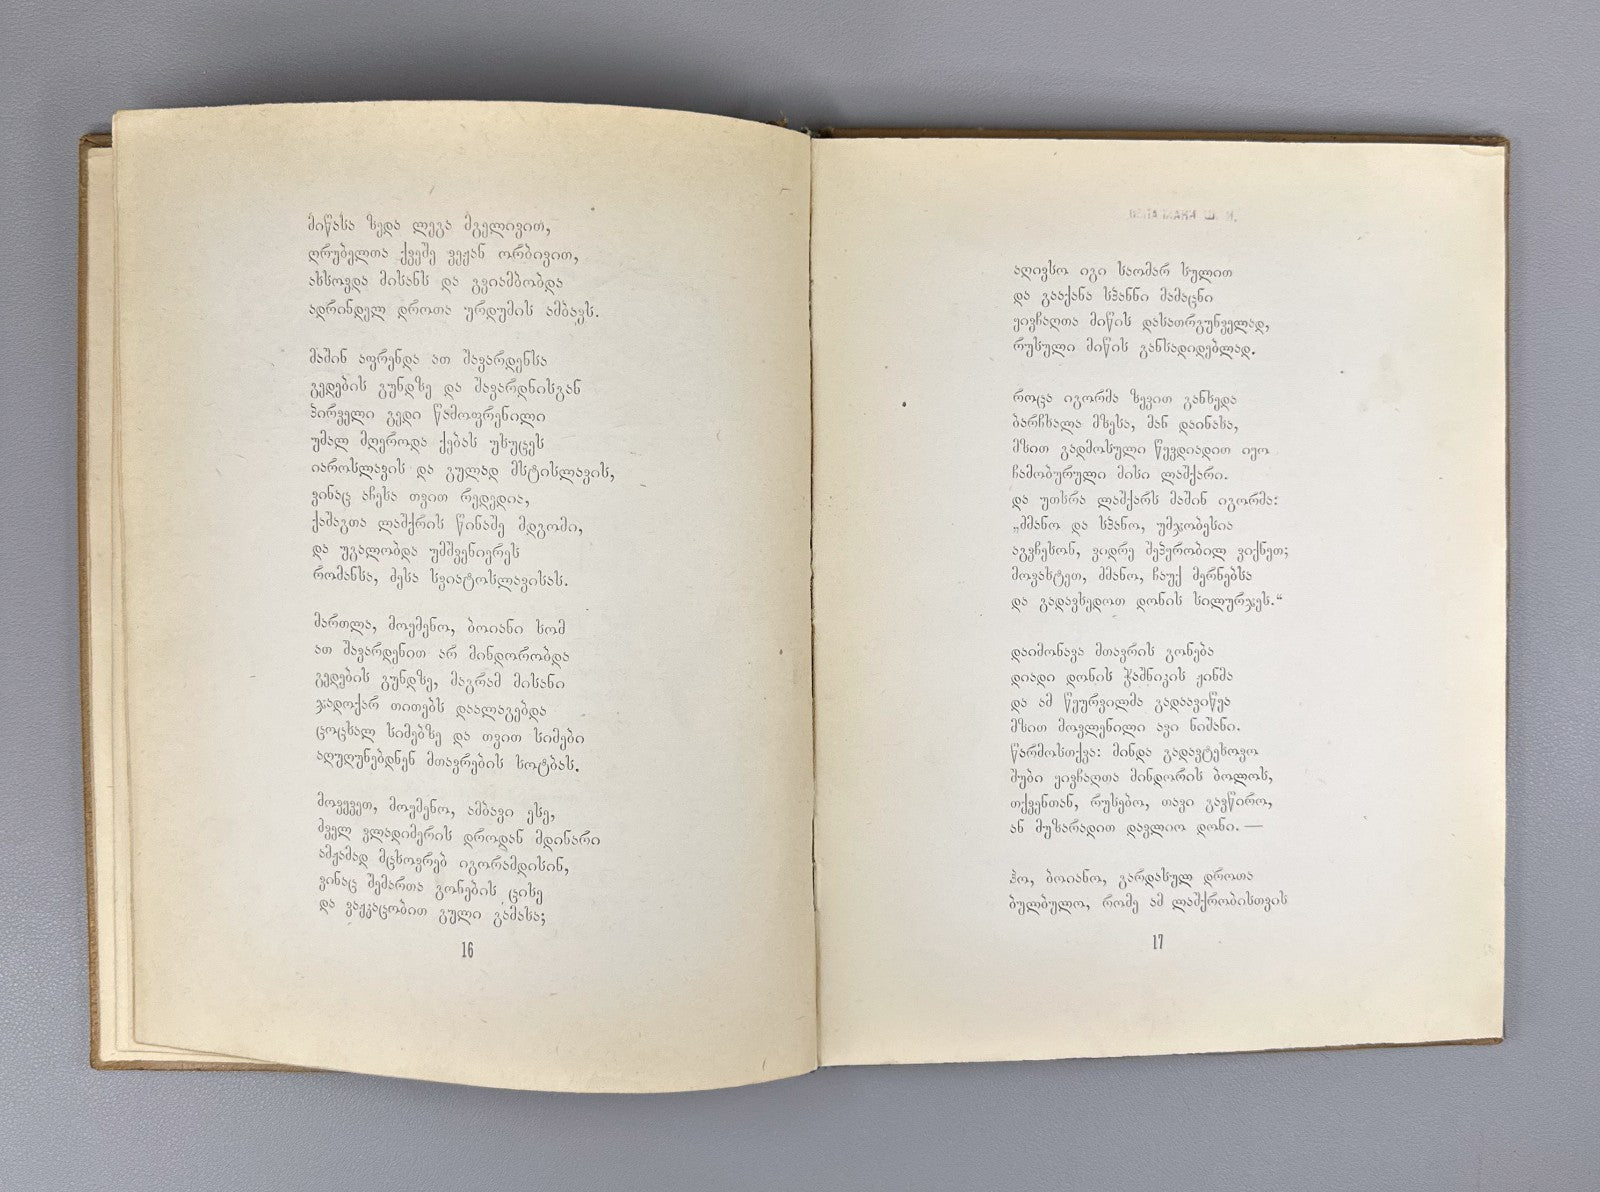 მიწასა ზედა ლეგა მგელივით,
ღრუბელთა ქვეშე ვეჟან ორბივით,
ახსოვდა მისანს და გვიამბობდა
ადრინდელ დროთა ურდუმის ამბავს.
მაშინ აფრენდა ათ შავარდენსა
გედების გუნდზე და შავარდნისგან
პირველი გედი წამოფრენილი
უმალ მღეროდა ქებას უხუცეს
იაროსლავის და გულად მსტისლავის,
ვინაც აჩეხა თვით რედედია,
ქაშაგთა ლაშქრის წინაშე მდგომი,
და უგალობდა უმშვენიერეს
რომანსა, ძესა სვიატოსლავისას.
მართლა, მოძმენო, ბოიანი ხომ
ათ შავარდენით არ მინდორობდა
გედების გუნდზე, მაგრამ მისანი
ჯადოქარ თითებს დაალაგებდა
ცოცხალ სიმებზე და თვით სიმები
აღუღუნებდნენ მთავრების ხოტბას.
მოვყვეთ, მოძმენო, ამბავი ესე,
ძველ ვლადიმერის დროდან მდინარი
ამჟამად მცხოვრებ იგორამდისინ,
ვინაც შემართა გონების ცისე
და ვაჟკაცობით გული გამასა;
16
აღივსო იგი საომარ სულით
და გააქანა სპანნი მამაცნი
ყივჩაღთა მიწის დასათრგუნველად,
რუსული მიწის განსადიდებლად.
როცა იგორმა ზევით განხედა
ბარჩხალა მზესა, მან დაინახა,
მზით გადმოსული წყვდიადით იყო
ჩამობურული მისი ლაშქარი.
და უთხრა ლაშქარს მაშინ იგორმა:
„ძმანო და სპანო, უმჯობესია
აგვჩეხონ, ვიდრე შეპყრობილ ვიქნეთ;
მოვახტეთ, ძმანო, ჩაუქ მერნებსა
და გადავხედოთ დონის სილურჯეს.“
დაიმონავა მთავრის გონება
დიადი დონის ჭაშნიკის ჟინმა
და ამ წყურვილმა გადაავიწყა
მზით მოვლენილი ავი ნიშანი.
წარმოსთქვა: მინდა გადავტეხოვო
შუბი ყივჩაღთა მინდორის ბოლოს,
თქვენთან, რუსებო, თავი გავწირო,
ან მუზარადით დავლიო დონი. —
ჰო, ბოიანო, გარდასულ დროთა
ბულბულო, რომე ამ ლაშქრობისთვის
17